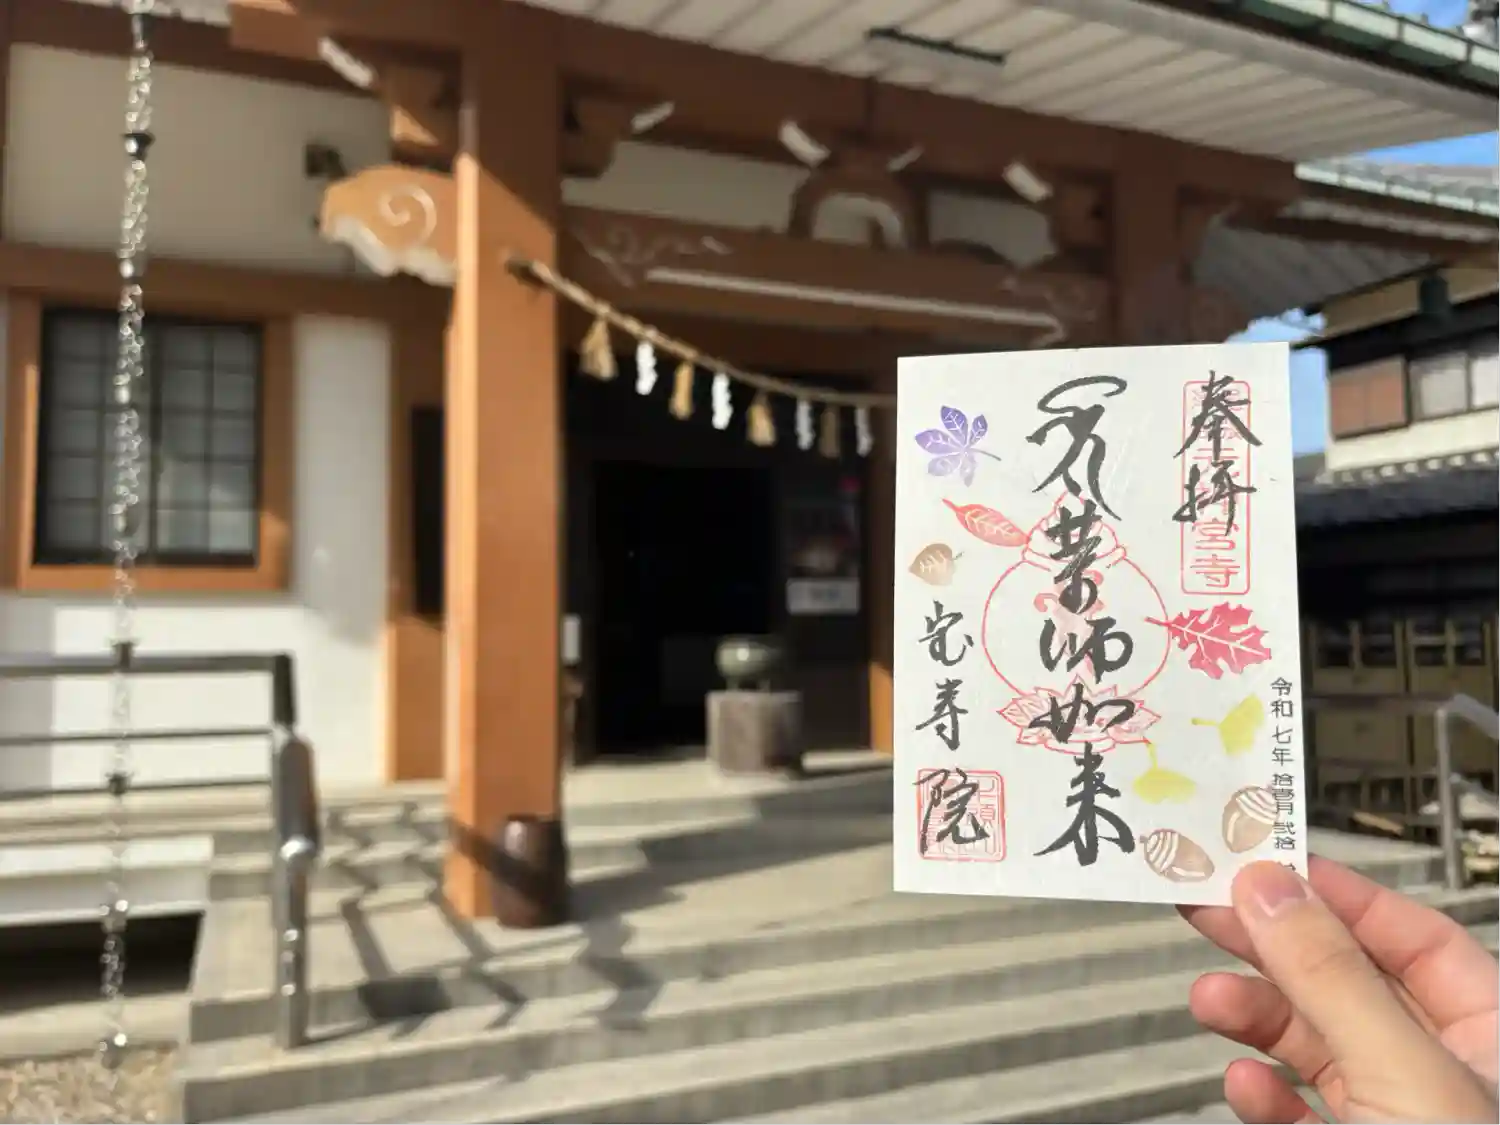 奉拝
宮寺
令和七年 拾壹月 弐拾
薬師如来
宝寿院